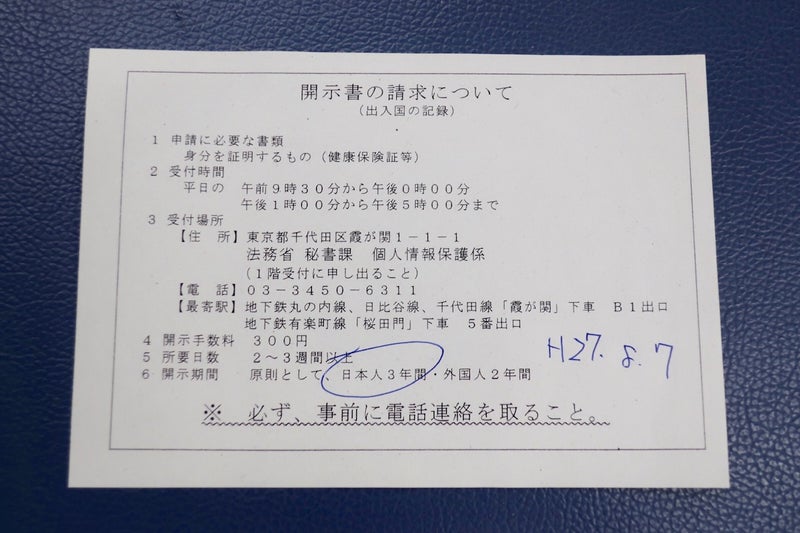 開示書の請求について
（出入国の記録）
１ 申請に必要な書類
身分を証明するもの（健康保険証等）
２ 受付時間
平日の 午前９時３０分から午後０時００分
午後１時００分から午後５時００分まで
３ 受付場所
【住 所】東京都千代田区霞が関１－１－１
法務省 秘書課 個人情報保護係
（１階受付に申し出ること）
【電 話】０３－３４５０－６３１１
【最寄駅】地下鉄丸の内線、日比谷線、千代田線「霞が関」下車 Ｂ１出口
地下鉄有楽町線「桜田門」下車 ５番出口
４ 開示手数料 ３００円
５ 所要日数 ２～３週間以上
６ 開示期間 原則として、日本人３年間・外国人２年間
H27. 8. 7
※ 必ず、事前に電話連絡を取ること。